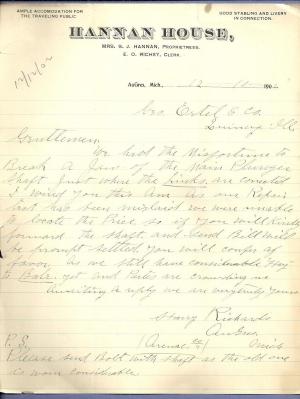 AMPLE ACCOMODATION FOR
THE TRAVELING PUBLIC
GOOD STABLING AND LIVERY
IN CONNECTION.
HANNAN HOUSE,
MRS. S. J. HANNAN, PROPRIETRESS.
E. O. RICHEY, CLERK.
AuGres, Mich., 12 11 190
Geo. Ertel & Co.
Quincy Ill
Gentlemen
We had the Misfortune to
Break a Jaw of the Main Plunger
Shaft Just where the Links are
I wired you this Am as our Repair
List has been mislaid we were unable
to locate the Price so if you will Kindly
forward the shaft and send Bill will
be prompt settled you will confer a
favor as we still have considerable Hay
to Bale yet and Parties are crowding me
Awaiting a reply we are urgently yours
Richards
AuGres
(Arenac Co) Mich
P. S.
Please send Bolt with shaft as the old one
is worn considerable